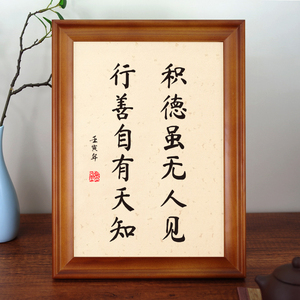 积德虽无人见
行善自有天知
壬寅年